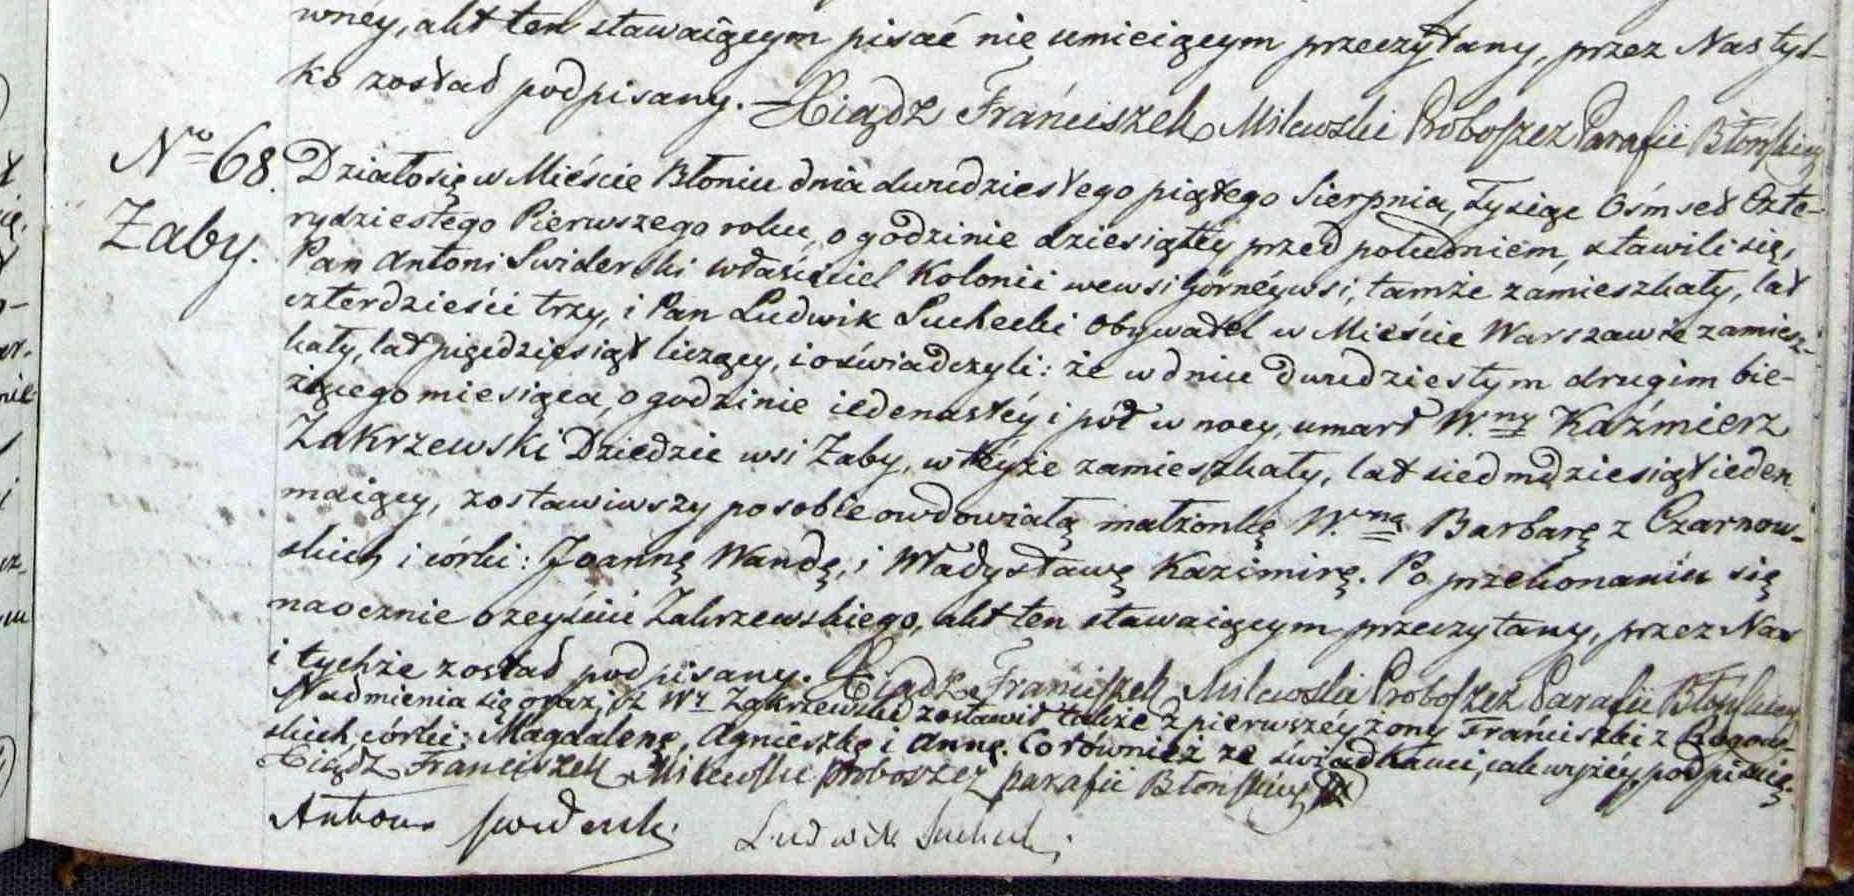 wnéy, akt ten stawaiącym pisać nie umieiącym przeczytany, przez Nas tyl-
ko został podpisany. Xiądz Franciszek Milewski Proboszcz Parafii Błońskiey
Nro 68. Działo się w Mieście Błoniu dnia dwudziestego piątego Sierpnia, Tysiąc Ośmset Czte-
Żaby. rydziestego Pierwszego roku, o godzinie dziesiątéy przed południem, stawili się,
Pan Antoni Swiderski właściciel Kolonii we wsi Górnéywsi, tamże zamieszkały, lat
czterdzieści trzy, i Pan Ludwik Suchecki Obywatel w Mieście Warszawie zamiesz-
kały, lat pięćdziesiąt liczący, i oświadczyli: że w dniu dwudziestym drugim bie-
żącego miesiąca, o godzinie iedenastéy i pół w nocy, umarł W.ny Kaźmierz
Zakrzewski Dziedzic wsi Żaby, w téyże zamieszkały, lat siedmdziesiąt ieden
maiący, zostawiwszy po sobie owdowiałą małżonkę W.ną Barbarę z Czarnow-
skich i córki: Joannę Wandę, i Władysławę Kazimirę. Po przekonaniu się
naocznie o zeyściu Zakrzewskiego, akt ten stawaiącym przeczytany, przez Nas
i tychże został podpisany. Xiądz Franciszek Milewski Proboszcz Parafii Błońskiey
Nadmienia się oraz, iż Wy Zakrzewski zostawił także z pierwszéy żony Franciszki z Rogow-
skich córki: Magdalenę, Agnieszkę i Annę. Co również ze świadkami, iak wyżéy, podpisuię.
Xiądz Franciszek Milewski proboszcz parafii Błońskiey
Antoni Swiderski Ludwik Suchecki